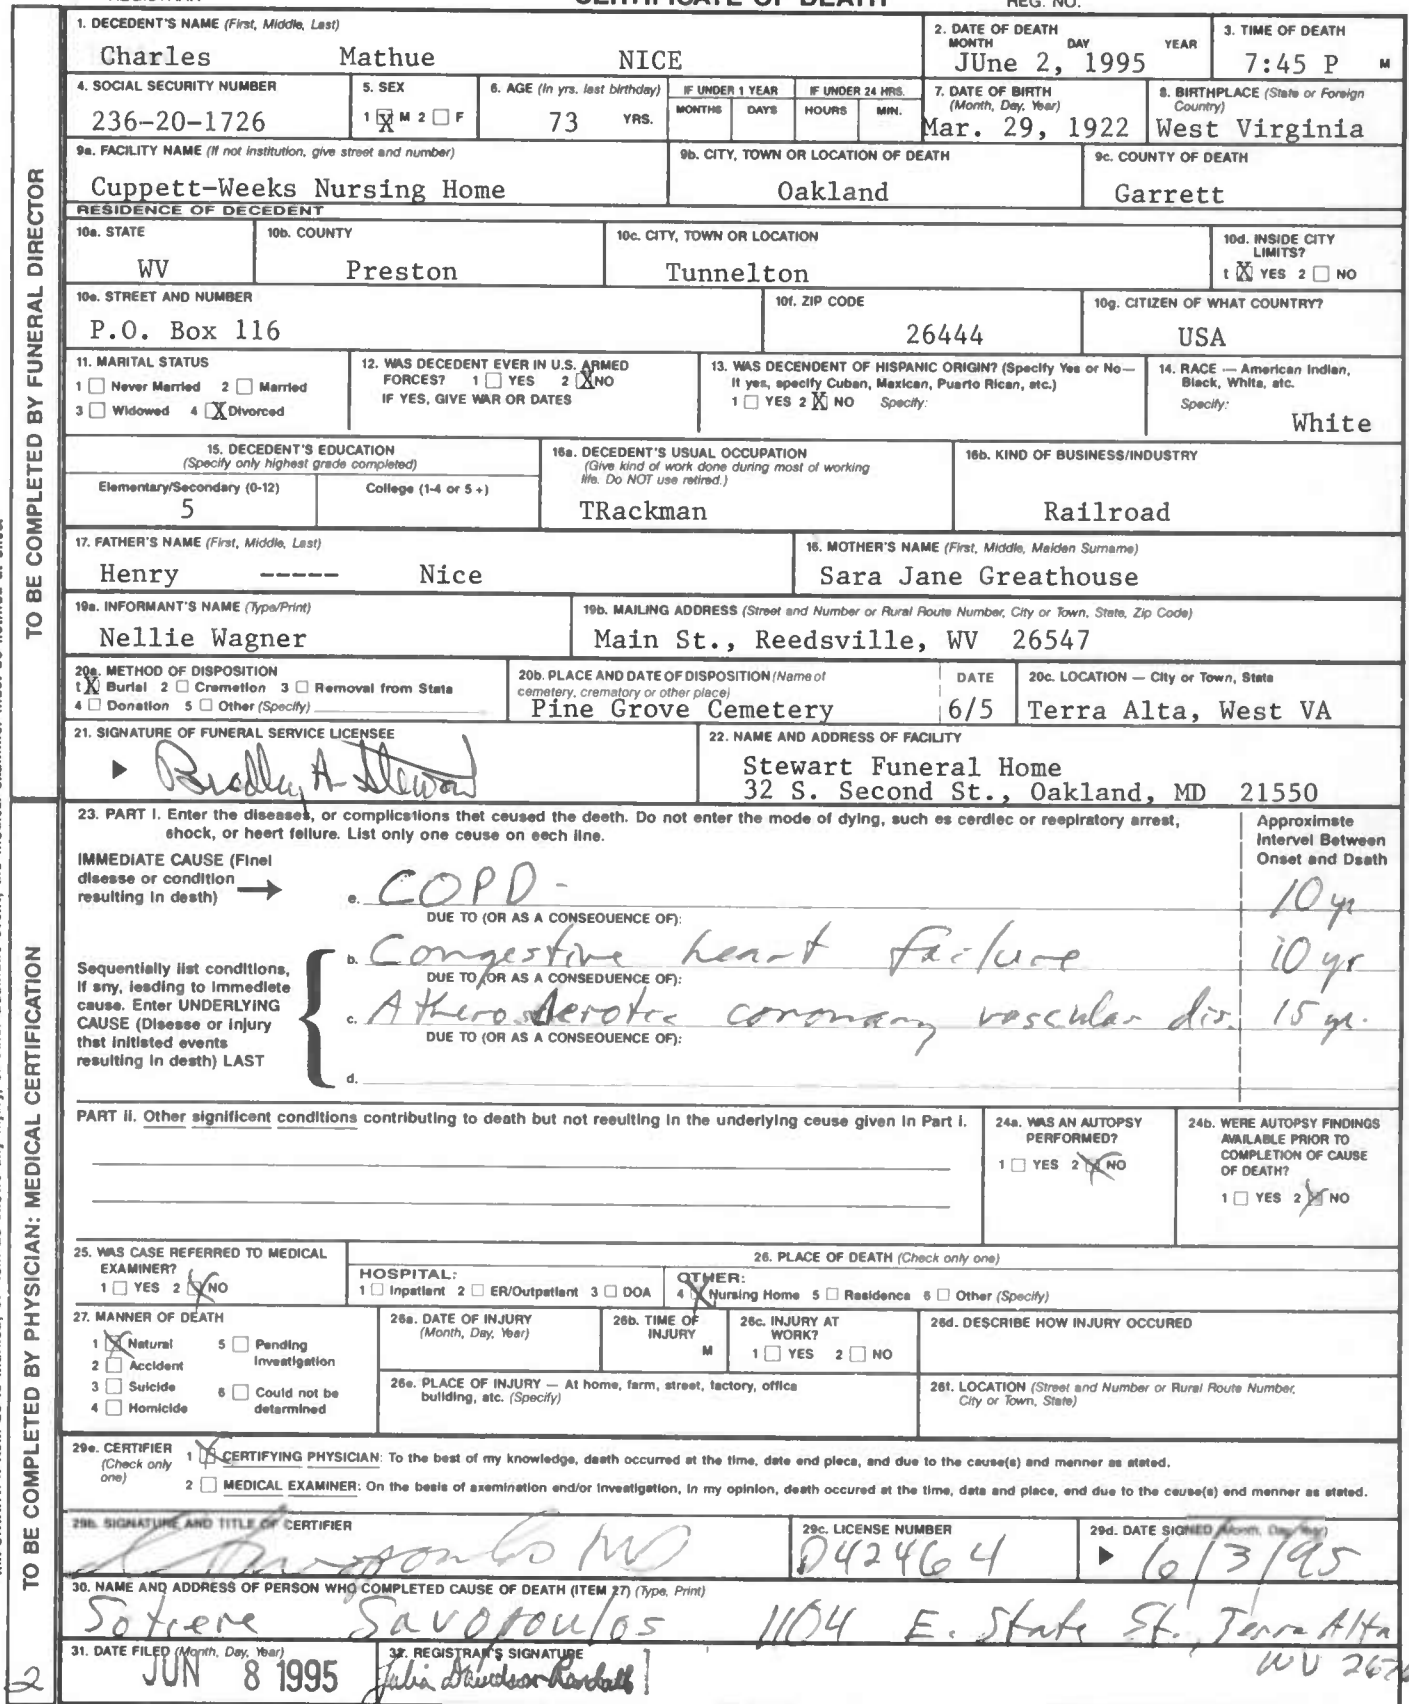 CERTIFICATE OF DEATH
REG. NO.
1. DECEDENT'S NAME (First, Middle, Last)
Charles Mathue NICE
2. DATE OF DEATH
MONTH DAY YEAR
JUne 2, 1995
3. TIME OF DEATH
7:45 P M
4. SOCIAL SECURITY NUMBER
236-20-1726
5. SEX
1 X M 2 ☐ F
6. AGE (In yrs. last birthday)
73 YRS.
IF UNDER 1 YEAR
MONTHS DAYS
IF UNDER 24 HRS.
HOURS MIN.
7. DATE OF BIRTH
(Month, Day, Year)
Mar. 29, 1922
8. BIRTHPLACE (State or Foreign
Country)
West Virginia
9a. FACILITY NAME (If not institution, give street and number)
Cuppett-Weeks Nursing Home
9b. CITY, TOWN OR LOCATION OF DEATH
Oakland
9c. COUNTY OF DEATH
Garrett
RESIDENCE OF DECEDENT
10a. STATE
WV
10b. COUNTY
Preston
10c. CITY, TOWN OR LOCATION
Tunnelton
10d. INSIDE CITY
LIMITS?
1 X YES 2 ☐ NO
10e. STREET AND NUMBER
P.O. Box 116
10f. ZIP CODE
26444
10g. CITIZEN OF WHAT COUNTRY?
USA
11. MARITAL STATUS
1 ☐ Never Married 2 ☐ Married
3 ☐ Widowed 4 X Divorced
12. WAS DECEDENT EVER IN U.S. ARMED
FORCES? 1 ☐ YES 2 X NO
IF YES, GIVE WAR OR DATES
13. WAS DECENDENT OF HISPANIC ORIGIN? (Specify Yes or No—
If yes, specify Cuban, Mexican, Puerto Rican, etc.)
1 ☐ YES 2 X NO Specify:
14. RACE — American Indian,
Black, White, etc.
Specify:
White
15. DECEDENT'S EDUCATION
(Specify only highest grade completed)
Elementary/Secondary (0-12)
5
College (1-4 or 5 +)
16a. DECEDENT'S USUAL OCCUPATION
(Give kind of work done during most of working
life. Do NOT use retired.)
TRackman
16b. KIND OF BUSINESS/INDUSTRY
Railroad
17. FATHER'S NAME (First, Middle, Last)
Henry ----- Nice
16. MOTHER'S NAME (First, Middle, Maiden Surname)
Sara Jane Greathouse
19a. INFORMANT'S NAME (Type/Print)
Nellie Wagner
19b. MAILING ADDRESS (Street and Number or Rural Route Number, City or Town, State, Zip Code)
Main St., Reedsville, WV 26547
20a. METHOD OF DISPOSITION
1 X Burial 2 ☐ Cremation 3 ☐ Removal from State
4 ☐ Donation 5 ☐ Other (Specify)
20b. PLACE AND DATE OF DISPOSITION (Name of
cemetery, crematory or other place)
Pine Grove Cemetery
DATE
6/5
20c. LOCATION — City or Town, State
Terra Alta, West VA
21. SIGNATURE OF FUNERAL SERVICE LICENSEE
Bradley A. Stewart
22. NAME AND ADDRESS OF FACILITY
Stewart Funeral Home
32 S. Second St., Oakland, MD 21550
TO BE COMPLETED BY FUNERAL DIRECTOR
23. PART I. Enter the diseases, or complications that caused the death. Do not enter the mode of dying, such as cardiac or respiratory arrest,
shock, or heart failure. List only one cause on each line.
Approximate
Interval Between
Onset and Death
IMMEDIATE CAUSE (Final
disease or condition
resulting in death)
a. COPD - 10 yr
DUE TO (OR AS A CONSEQUENCE OF):
b. Congestive heart failure 10 yr
DUE TO (OR AS A CONSEQUENCE OF):
c. Atherosclerotic coronary vascular dis. 15 yr.
DUE TO (OR AS A CONSEQUENCE OF):
d.
Sequentially list conditions,
If any, leading to immediate
cause. Enter UNDERLYING
CAUSE (Disease or injury
that initiated events
resulting in death) LAST
PART II. Other significant conditions contributing to death but not resulting in the underlying cause given in Part I.
24a. WAS AN AUTOPSY
PERFORMED?
1 ☐ YES 2 X NO
24b. WERE AUTOPSY FINDINGS
AVAILABLE PRIOR TO
COMPLETION OF CAUSE
OF DEATH?
1 ☐ YES 2 X NO
25. WAS CASE REFERRED TO MEDICAL
EXAMINER?
1 ☐ YES 2 X NO
26. PLACE OF DEATH (Check only one)
HOSPITAL:
1 ☐ Inpatient 2 ☐ ER/Outpatient 3 ☐ DOA
OTHER:
4 X Nursing Home 5 ☐ Residence 6 ☐ Other (Specify)
27. MANNER OF DEATH
1 X Natural 5 ☐ Pending
Investigation
2 ☐ Accident
3 ☐ Suicide 6 ☐ Could not be
determined
4 ☐ Homicide
28a. DATE OF INJURY
(Month, Day, Year)
28b. TIME OF
INJURY
M
28c. INJURY AT
WORK?
1 ☐ YES 2 ☐ NO
28d. DESCRIBE HOW INJURY OCCURED
28e. PLACE OF INJURY — At home, farm, street, factory, office
building, etc. (Specify)
28f. LOCATION (Street and Number or Rural Route Number,
City or Town, State)
29a. CERTIFIER
(Check only
one)
1 X CERTIFYING PHYSICIAN: To the best of my knowledge, death occurred at the time, date and place, and due to the cause(s) and manner as stated.
2 ☐ MEDICAL EXAMINER: On the basis of examination and/or investigation, in my opinion, death occured at the time, date and place, and due to the cause(s) and manner as stated.
29b. SIGNATURE AND TITLE OF CERTIFIER
MD
29c. LICENSE NUMBER
D42464
29d. DATE SIGNED (Month, Day, Year)
6/3/95
30. NAME AND ADDRESS OF PERSON WHO COMPLETED CAUSE OF DEATH (ITEM 27) (Type, Print)
Sotiere Savopoulos 1104 E. State St., Terra Alta
WV
31. DATE FILED (Month, Day, Year)
JUN 8 1995
32. REGISTRAR'S SIGNATURE
Julia Davidson-Randall
TO BE COMPLETED BY PHYSICIAN: MEDICAL CERTIFICATION
2